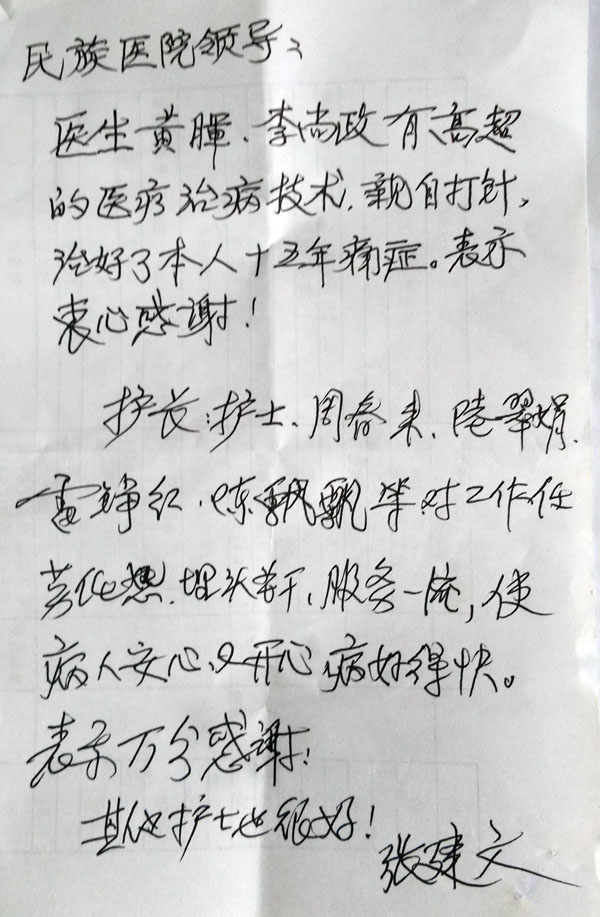 民族医院领导：
医生黄暉、李尚政有高超
的医疗治病技术，亲自打针，
治好了本人十五年痛症。表示
衷心感谢！
护长：护士、周春来、陆翠娟、
雷铮红、陈飘飘等对工作任
劳任怨，埋头苦干，服务一流，使
病人安心又开心病好得快。
表示万分感谢！
其他护士也很好！
张建文